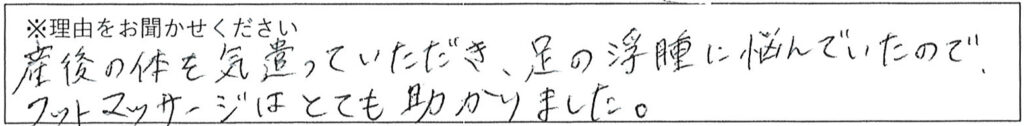 ※理由をお聞かせください
産後の体を気遣っていただき、足の浮腫に悩んでいたので、
フットマッサージはとても助かりました。